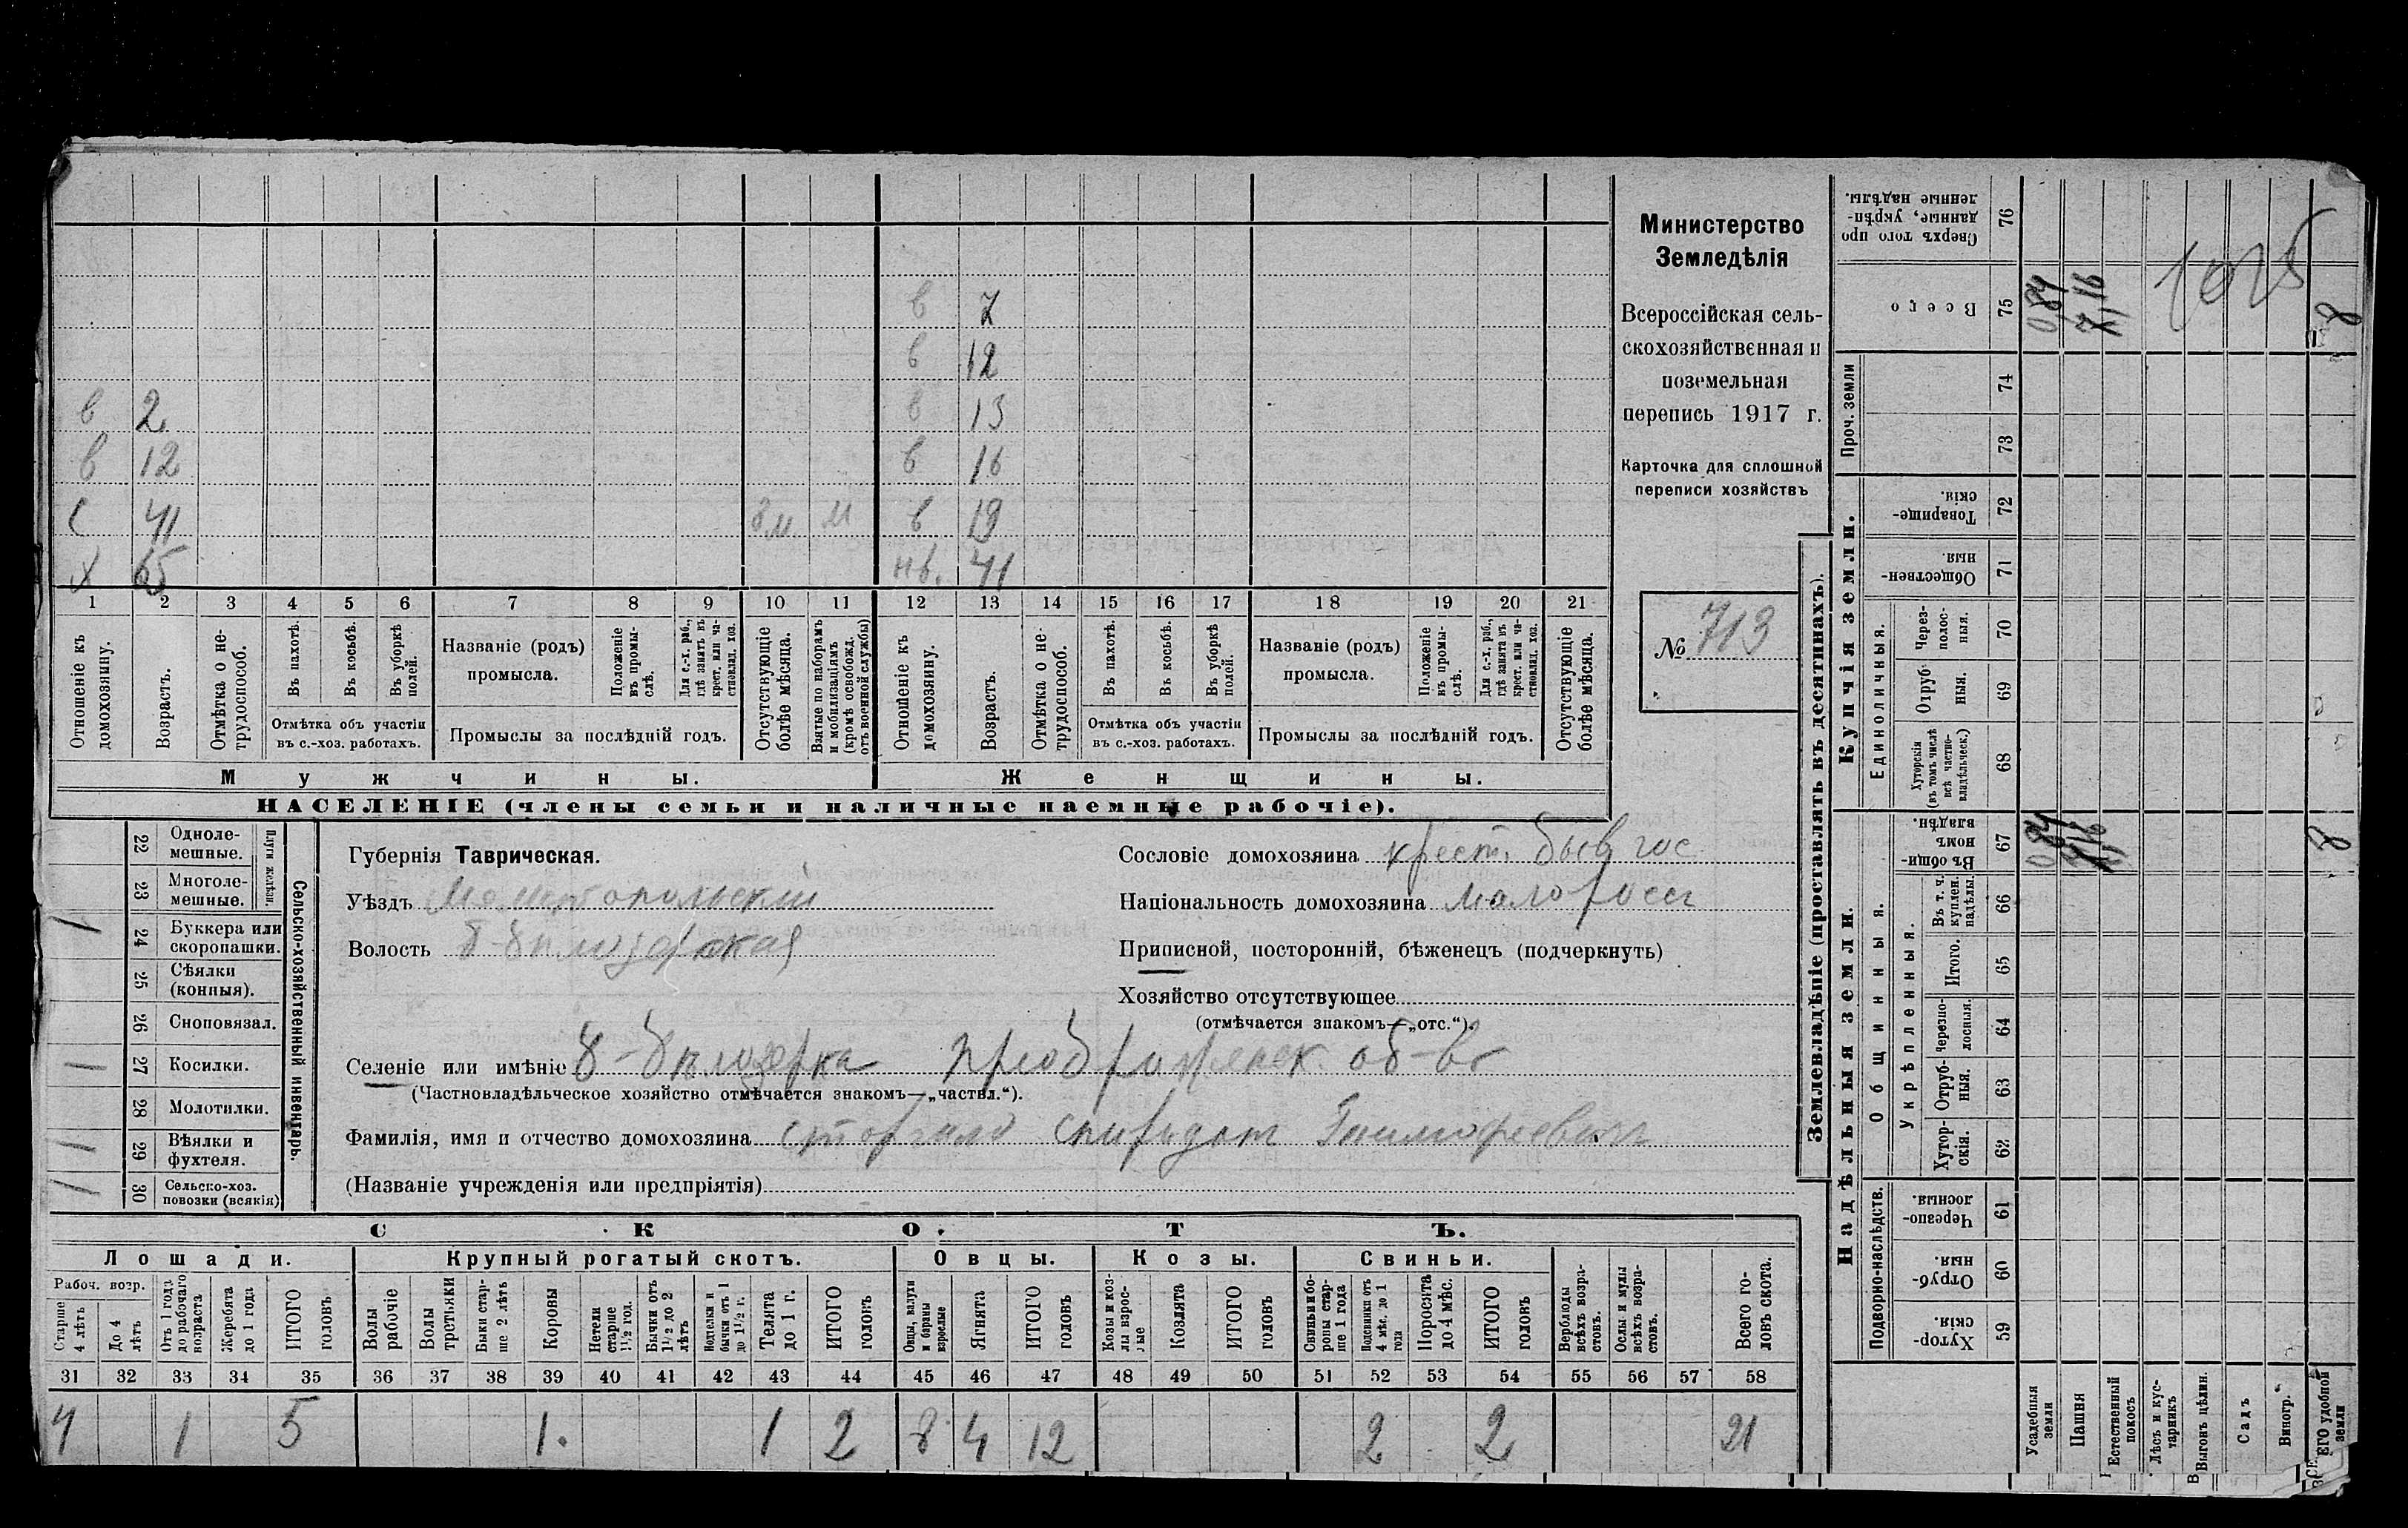 в 7
в 12
в 2 в 13
в 12 в 16
с 41 м в 19
х 65 нв. 41
1 2 3 4 5 6 7 8 9 10 11 12 13 14 15 16 17 18 19 20 21
Отношеніе къ домохозяину.
Возрастъ.
Отмѣтка о не-трудоспособ.
Въ пахотѣ.
Въ косьбѣ.
Въ уборкѣ полей.
Отмѣтка объ участіи
въ с.-хоз. работахъ.
Названіе (родъ)
промысла.
Положеніе въ промы-слѣ.
Для с.-х. раб., гдѣ занятъ въ крест. или ча-стновлад. хоз.
Промыслы за послѣдній годъ.
Отсутствующіе болѣе мѣсяца.
Взятые по наборамъ и мобилизаціямъ (кромѣ освобожд. отъ военной службы)
Отношеніе къ домохозяину.
Возрастъ.
Отмѣтка о не-трудоспособ.
Въ пахотѣ.
Въ косьбѣ.
Въ уборкѣ полей.
Отмѣтка объ участіи
въ с.-хоз. работахъ.
Названіе (родъ)
промысла.
Положеніе въ промы-слѣ.
Для с.-х. раб., гдѣ занята въ крест. или ча-стновлад. хоз.
Промыслы за послѣдній годъ.
Отсутствующіе болѣе мѣсяца.
Мужчины. Женщины.
НАСЕЛЕНІЕ (члены семьи и наличные наемные рабочіе).
Министерство
Земледѣлія
Всероссійская сель-
скохозяйственная и
поземельная
перепись 1917 г.
Карточка для сплошной
переписи хозяйствъ
№ 713
22 Одноле-мешные.
23 Многоле-мешные.
Плуги желѣзн.
24 Буккера или скоропашки. 1
25 Сѣялки (конныя).
26 Сноповязал.
27 Косилки. 1
28 Молотилки.
29 Вѣялки и фухтеля. 1
30 Сельско-хоз. повозки (всякія)
Сельско-хозяйственный инвентарь.
Губернія Таврическая.
Уѣздъ Мелитопольскій
Волость Б-Бѣлозерская
Сословіе домохозяина крест. бывг гос
Національность домохозяина малоросс
Приписной, посторонній, бѣженецъ (подчеркнуть)
Хозяйство отсутствующее
(отмѣчается знакомъ—„отс.“).
Селеніе или имѣніе Б-Бѣлозерка Преображенск. об-во
(Частновладѣльческое хозяйство отмѣчается знакомъ—„частвл.“).
Фамилія, имя и отчество домохозяина Спиридон Тимофеевич
(Названіе учрежденія или предпріятія)
СКОТЪ.
Лошади. Крупный рогатый скотъ. Овцы. Козы. Свиньи.
Рабоч. возр.
Старше 4 лѣтъ
До 4 лѣтъ
Отъ 1 года до рабочаго возраста
Жеребята до 1 года
ИТОГО головъ
Волы рабочіе
Волы третьяки
Быки стар-ше 2 лѣтъ
Коровы
Нетели старше 1½ год.
Бычки отъ 1½ до 2 лѣтъ
Подтелки и бычки отъ 1 до 1½ г.
Телята до 1 г.
ИТОГО головъ
Овцы, валухи и бараны взрослые
Ягнята
ИТОГО головъ
Козы и коз-лы взрос-лые
Козлята
ИТОГО головъ
Свиньи и бо-ровы стар-ше 1 года
Подсвинки отъ 4 мѣс. до 1 года
Поросята до 4 мѣс.
ИТОГО головъ
Верблюды всѣхъ возра-стовъ.
Ослы и мулы всѣхъ возра-стовъ.
Всего го-ловъ скота.
31 32 33 34 35 36 37 38 39 40 41 42 43 44 45 46 47 48 49 50 51 52 53 54 55 56 57 58
4 1 5 1. 1 2 8 4 12 2 2 21
Землевладѣніе (проставлять въ десятинахъ).
Надѣльныя земли.
Подворно-наслѣдств.
Хутор-скія. 59
Отруб-ныя. 60
Черезпо-лосныя. 61
Общинныя.
Укрѣпленныя.
Хутор-скія. 62
Отруб-ныя. 63
Черезпо-лосныя. 64
Итого. 65
Въ т. ч. куплен. надѣлы. 66
Въ общи-номъ владѣн. 67
Купчія земли.
Единоличныя.
Хуторскія (въ томъ числѣ всѣ частно-владѣльческ.) 68
Отруб-ныя. 69
Через-полос-ныя. 70
Обществен-ныя 71
Товарище-скія. 72
Проч. земли
73
74
Всего 75
Сверхъ того про-данные, укрѣп-ленные надѣлы. 76
Усадебныя земли
Пашня
Естественный покосъ
Лѣсъ и кус-тарникъ
Выгонъ цѣлин.
Садъ
Виногр.
ЕГО удобной земли
0,84 7,16 8
0,84 7,16 8